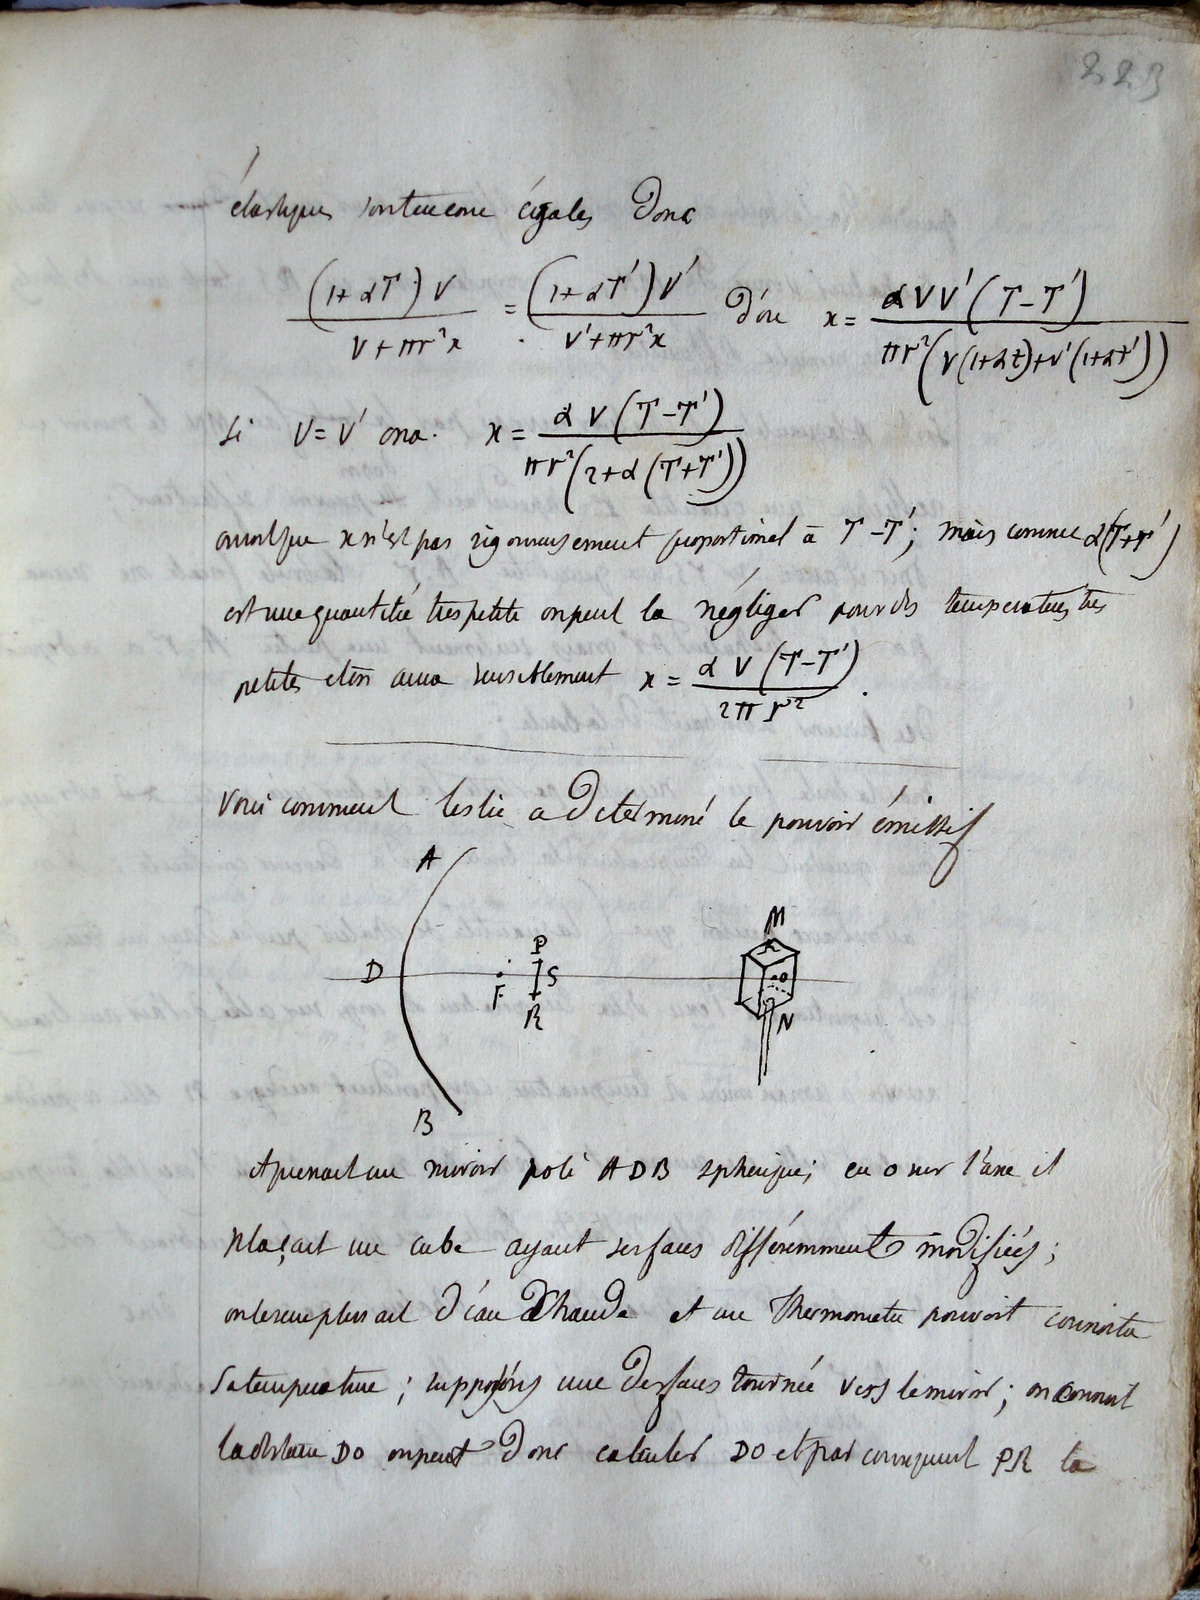 223
élastiques sont encore égales donc
(1+αT)V / V+πr²x = (1+αT')V' / V'+πr²x d'où x = αVV'(T-T') / πr²(V(1+αt)+V'(1+αt'))
si V=V' on a. x = αV(T-T') / πr²(2+α(T+T'))
on voit que x n'est pas rigoureusement proportionel à T-T'; mais comme α(T+T')
est une quantité tres petite on peut la négliger pour des temperatures tres
petites et l'on aura sensiblement x = αV(T-T') / 2πr².
Voici comment leslie a déterminé le pouvoir émissif
A
M
P
D
S
F
o
R
N
B
il prenait un miroir poli ADB spherique; en o sur l'axe il
plaçait un cube ayant ses faces différemment modifiées;
on le remplissait d'eau chaude et un thermometre pouvoit connoitre
sa temperature; supposons une des faces tournée vers le miroir; on connoit
la distance DO on peut donc calculer DO et par consequent PR la